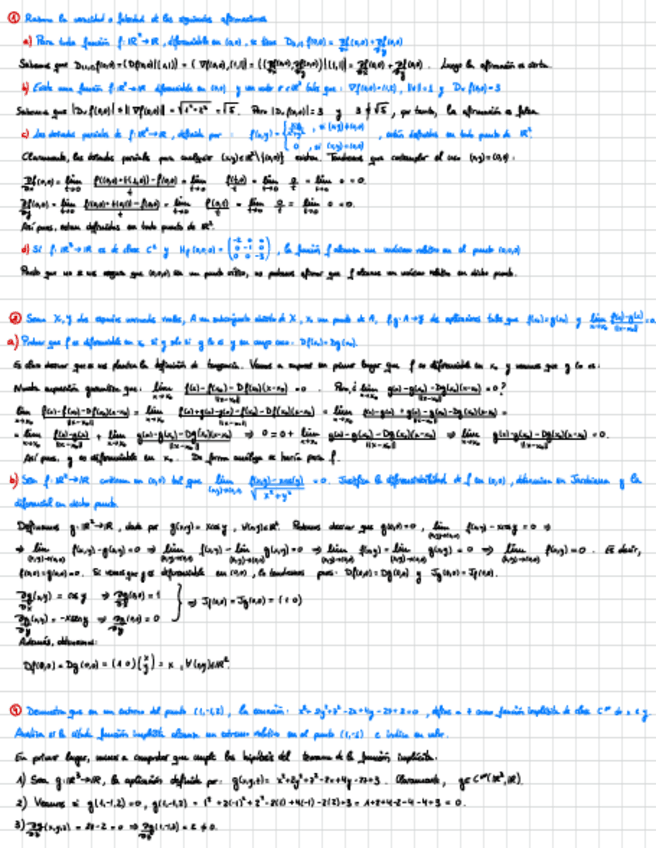 ① Razona la veracidad o falsedad de las siguientes afirmaciones
a) Para toda función f: ℝ²→ℝ, diferenciable en (0,0), se tiene D₍₁,₁₎f(0,0) = ∂f/∂x(0,0) + ∂f/∂y(0,0)
Sabemos que D₍₁,₁₎f(0,0) = (Df(0,0))(1,1) = (∇f(0,0),(1,1)) = ((∂f/∂x(0,0), ∂f/∂y(0,0))|(1,1)) = ∂f/∂x(0,0) + ∂f/∂y(0,0). Luego la afirmación es cierta.
b) Existe una función f: ℝ²→ℝ diferenciable en (0,0) y un vector v∈ℝ² tales que: ∇f(0,0)=(1,2), ‖v‖=1 y Dᵥf(0,0)=3
Sabemos que |Dᵥf(0,0)| ≤ ‖∇f(0,0)‖ = √1²+2² = √5. Pero |Dᵥf(0,0)|=3 y 3 ≰ √5, por tanto, la afirmación es falsa.
c) Las derivadas parciales de f: ℝ²→ℝ, definida por: f(x,y) = { , si (x,y)≠(0,0) 0, si (x,y)=(0,0) , están definidas en todo punto de ℝ²
Claramente, las derivadas parciales para cualquier (x,y)∈ℝ²\{(0,0)} existen. Tendremos que contemplar el caso (x,y)=(0,0):
∂f/∂x(0,0) = lím t→0 f((0,0)+t(1,0))-f(0,0)/t = lím t→0 f(t,0)/t = lím t→0 0/t = lím t→0 0 = 0.
∂f/∂y(0,0) = lím t→0 f((0,0)+t(0,1))-f(0,0)/t = lím t→0 f(0,t)/t = lím t→0 0/t = lím t→0 0 = 0.
Así pues, están definidas en todo punto de ℝ².
d) Si f: ℝ³→ℝ es de clase C² y Hf(0,0,0) = (-2 0 0 / 0 -1 0 / 0 0 -3), la función f alcanza un máximo relativo en el punto (0,0,0)
Puesto que no se nos asegura que (0,0,0) sea un punto crítico, no podemos afirmar que f alcance un máximo relativo en dicho punto.
② Sean X, Y dos espacios normados reales, A un subconjunto abierto de X, x₀ un punto de A, f,g: A→Y dos aplicaciones tales que f(x₀)=g(x₀) y lím x→x₀ f(x)-g(x)/‖x-x₀‖ = 0
a) Probar que f es diferenciable en x₀ si y sólo si g lo es y en cuyo caso: Df(x₀)=Dg(x₀).
Es claro que se nos plantea la definición de tangencia. Vamos a suponer en primer lugar que f es diferenciable en x₀ y veamos que g lo es:
Nuestra suposición garantiza que: lím x→x₀ f(x)-f(x₀)-Df(x₀)(x-x₀)/‖x-x₀‖ = 0. Pero, ¿ lím x→x₀ g(x)-g(x₀)-Dg(x₀)(x-x₀)/‖x-x₀‖ = 0?
lím x→x₀ f(x)-f(x₀)-Df(x₀)(x-x₀)/‖x-x₀‖ = lím x→x₀ f(x)+g(x)-g(x)-f(x₀)-Df(x₀)(x-x₀)/‖x-x₀‖ = lím x→x₀ f(x)-g(x)+g(x)-g(x₀)-Dg(x₀)(x-x₀)/‖x-x₀‖ =
= lím x→x₀ f(x)-g(x)/‖x-x₀‖ + lím x→x₀ g(x)-g(x₀)-Dg(x₀)(x-x₀)/‖x-x₀‖ ⇒ 0 = 0 + lím x→x₀ g(x)-g(x₀)-Dg(x₀)(x-x₀)/‖x-x₀‖ ⇒ lím x→x₀ g(x)-g(x₀)-Dg(x₀)(x-x₀)/‖x-x₀‖ = 0.
Así pues, g es diferenciable en x₀. De forma análoga se haría para f.
b) Sea f: ℝ²→ℝ continua en (0,0) tal que lím (x,y)→(0,0) f(x,y)-xcos(y)/√x²+y² = 0. Justifica la diferenciabilidad de f en (0,0), determina su Jacobiana y la
diferencial en dicho punto.
Definimos g: ℝ²→ℝ, dada por g(x,y)=xcosy, ∀(x,y)∈ℝ². Podemos decir que g(0,0)=0, lím (x,y)→(0,0) f(x,y)-xcosy = 0 ⇒
⇒ lím (x,y)→(0,0) f(x,y)-g(x,y)=0 ⇒ lím (x,y)→(0,0) f(x,y) - lím (x,y)→(0,0) g(x,y)=0 ⇒ lím (x,y)→(0,0) f(x,y) = lím (x,y)→(0,0) g(x,y) = 0 ⇒ lím (x,y)→(0,0) f(x,y)=0. Es decir,
f(0,0)=g(0,0)=0. Si vemos que g es diferenciable en (0,0), lo tendremos pues: Df(0,0)=Dg(0,0) y Jg(0,0)=Jf(0,0).
∂g/∂x(x,y) = cosy ⇒ ∂g/∂x(0,0)=1
∂g/∂y(x,y) = -xseny ⇒ ∂g/∂y(0,0)=0 } ⇒ Jf(0,0)=Jg(0,0)=(1 0)
Además,
Df(0,0)=Dg(0,0)=(1 0)(x/y)=x, ∀(x,y)∈ℝ².
④ Demuestra que en un entorno del punto (1,-1,2), la ecuación: x²+2y²+z²-2x+4y-2z+3=0, define a z como función implícita de clase C^∞ de x e y.
Analiza si la citada función implícita alcanza un extremo relativo en el punto (1,-1) e indica su valor.
En primer lugar, vamos a comprobar que cumple las hipótesis del teorema de la función implícita.
1) Sea g: ℝ³→ℝ, la aplicación definida por: g(x,y,z)= x²+2y²+z²-2x+4y-2z+3. Claramente, g∈C^∞(ℝ³,ℝ).
2) Veamos si g(1,-1,2)=0, g(1,-1,2) = 1²+2(-1)²+2²-2(1)+4(-1)-2(2)+3 = 1+2+4-2-4-4+3 = 0.
3) ∂g/∂z(x,y,z) = 2z-2 = 0 ⇒ ∂g/∂z(1,-1,2) = 2 ≠ 0.